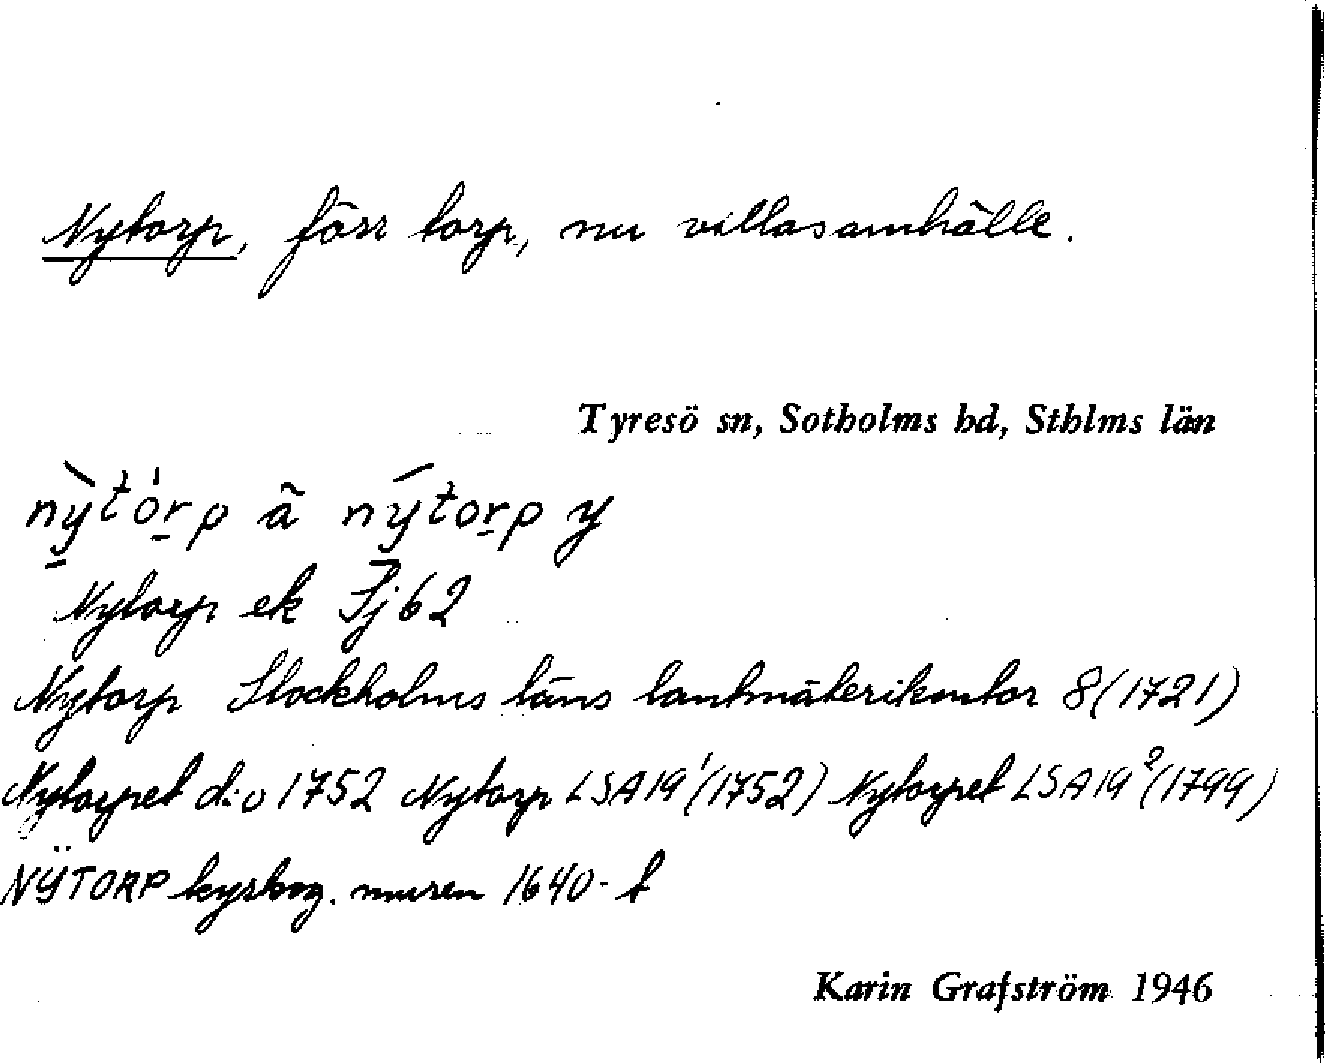 Nytorp, förr torp, nu villasamhälle.
Tyresö sn, Sotholms hd, Sthlms län
nỳtórp ã nýtorp y
Nytorp ek Jj62
Nytorp Stockholms läns lantmäterikontor 8(1721)
Nytorpet d:o 1752 Nytorp LSA 19¹(1752) Nytorpet LSA 19²(1799)
NŸTORP kyrkog. muren 1640-t
Karin Grafström 1946